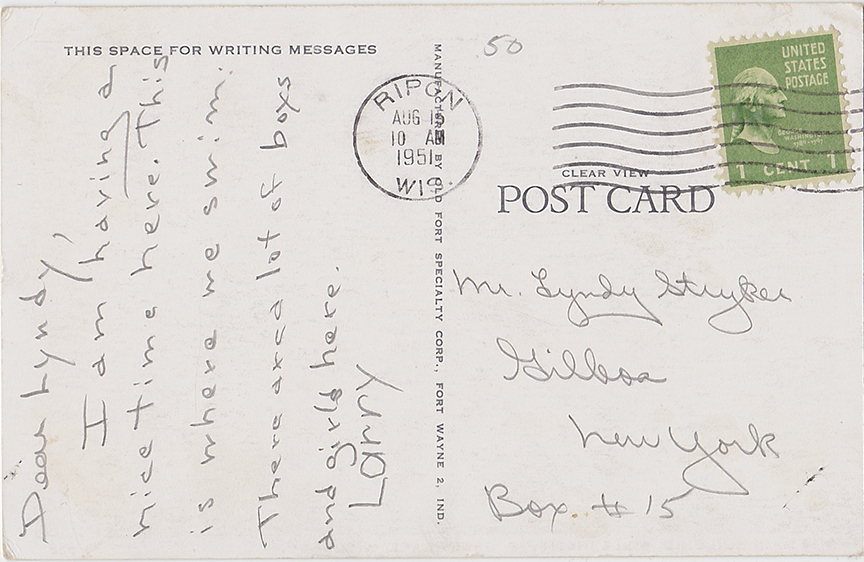 THIS SPACE FOR WRITING MESSAGES
Dear Lyndy,
I am having a
nice time here. This
is where we swim.
There are a lot of boys
and girls here.
Larry
MANUFACTURED BY OLD FORT SPECIALTY CORP., FORT WAYNE 2, IND.
50
RIPON
AUG
10 AM
1951
WIS.
UNITED
STATES
POSTAGE
1 CENT 1
CLEAR VIEW
POST CARD
Mr. Lyndy Stryker
Gilboa
New York
Box # 15